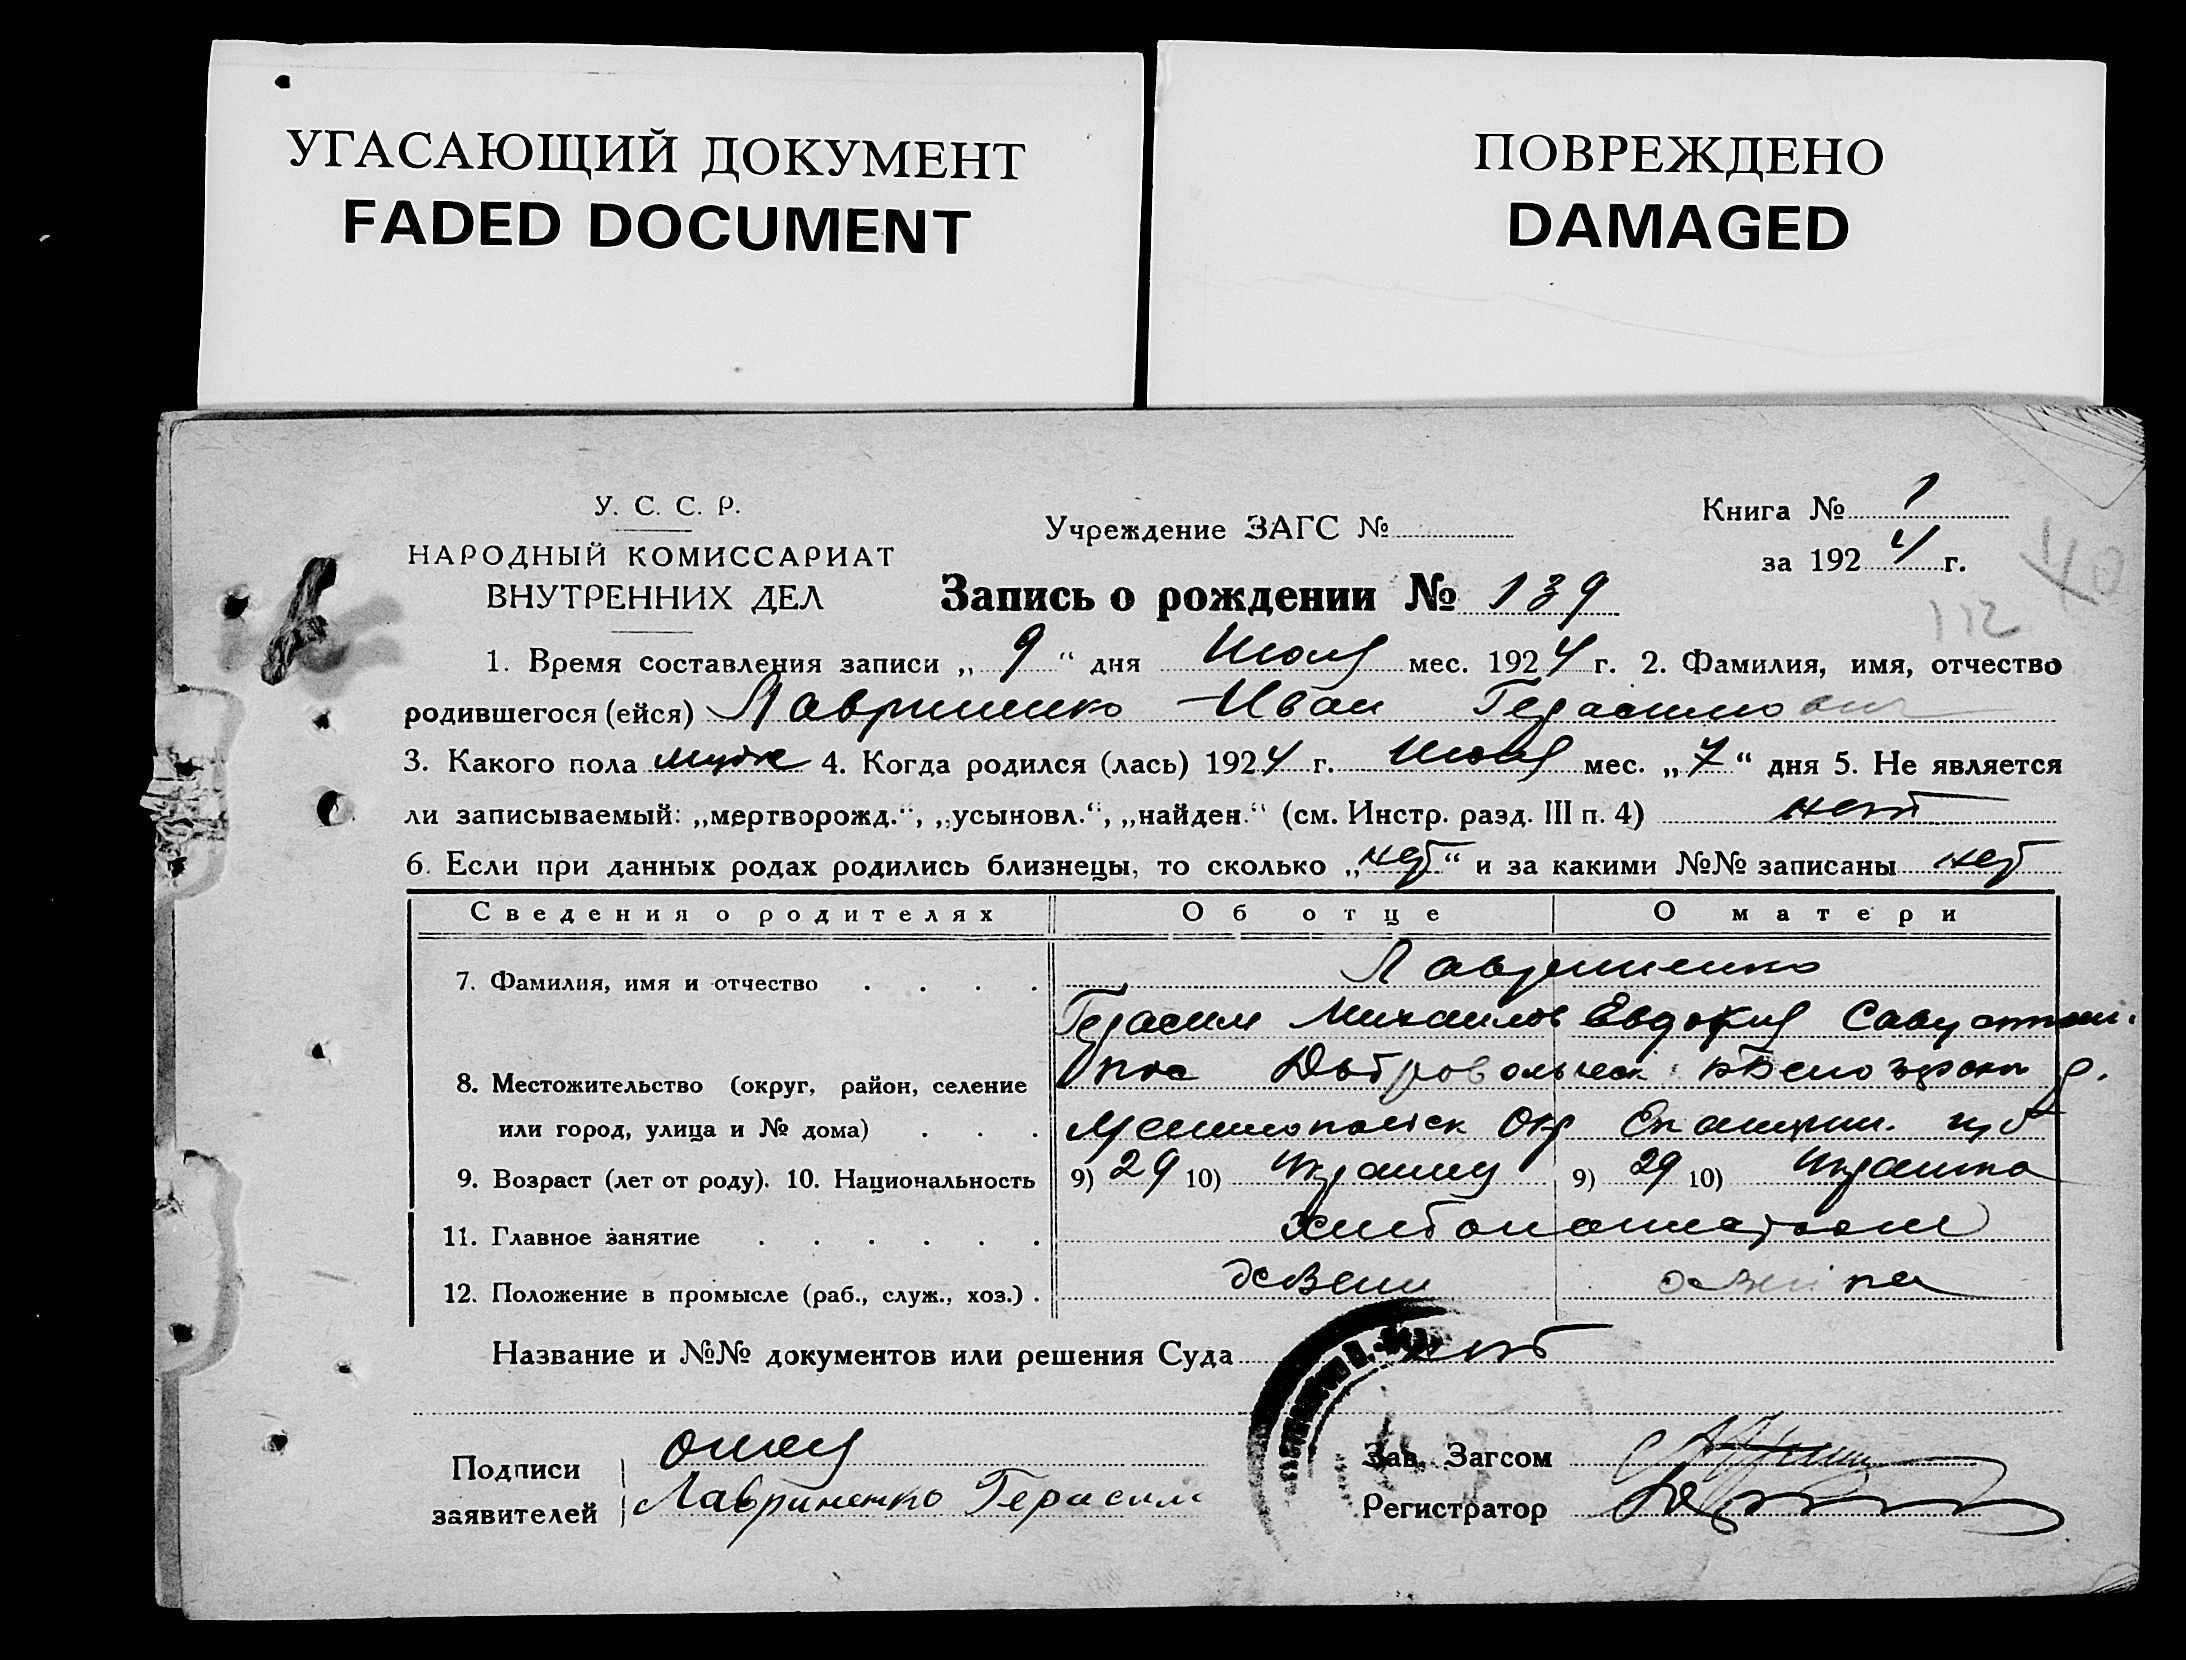 УГАСАЮЩИЙ ДОКУМЕНТ
FADED DOCUMENT
ПОВРЕЖДЕНО
DAMAGED
У. С. С. Р.
НАРОДНЫЙ КОМИССАРИАТ
ВНУТРЕННИХ ДЕЛ
Учреждение ЗАГС №
Книга № 1
за 1924 г.
40
112
Запись о рождении № 139
1. Время составления записи „ 9 “ дня Июля мес. 1924 г. 2. Фамилия, имя, отчество
родившегося (ейся) Лавриненко Иван Герасимович
3. Какого пола муж 4. Когда родился (лась) 1924 г. Июля мес. „ 7 “ дня 5. Не является
ли записываемый: „мертворожд.“, „усыновл.“, „найден.“ (см. Инстр. разд. III п. 4) нет
6. Если при данных родах родились близнецы, то сколько „ нет “ и за какими №№ записаны нет
Сведения о родителях Об отце О матери
7. Фамилия, имя и отчество Лавриненко
Герасим Михайлов Евдокия
8. Местожительство (округ, район, селение
или город, улица и № дома) Окр
9. Возраст (лет от роду). 10. Национальность 9) 29 10) 9) 29 10)
11. Главное занятие
12. Положение в промысле (раб., служ., хоз.)
Название и №№ документов или решения Суда нет
Подписи
заявителей Лавриненко Герасим
Зав. Загсом
Регистратор